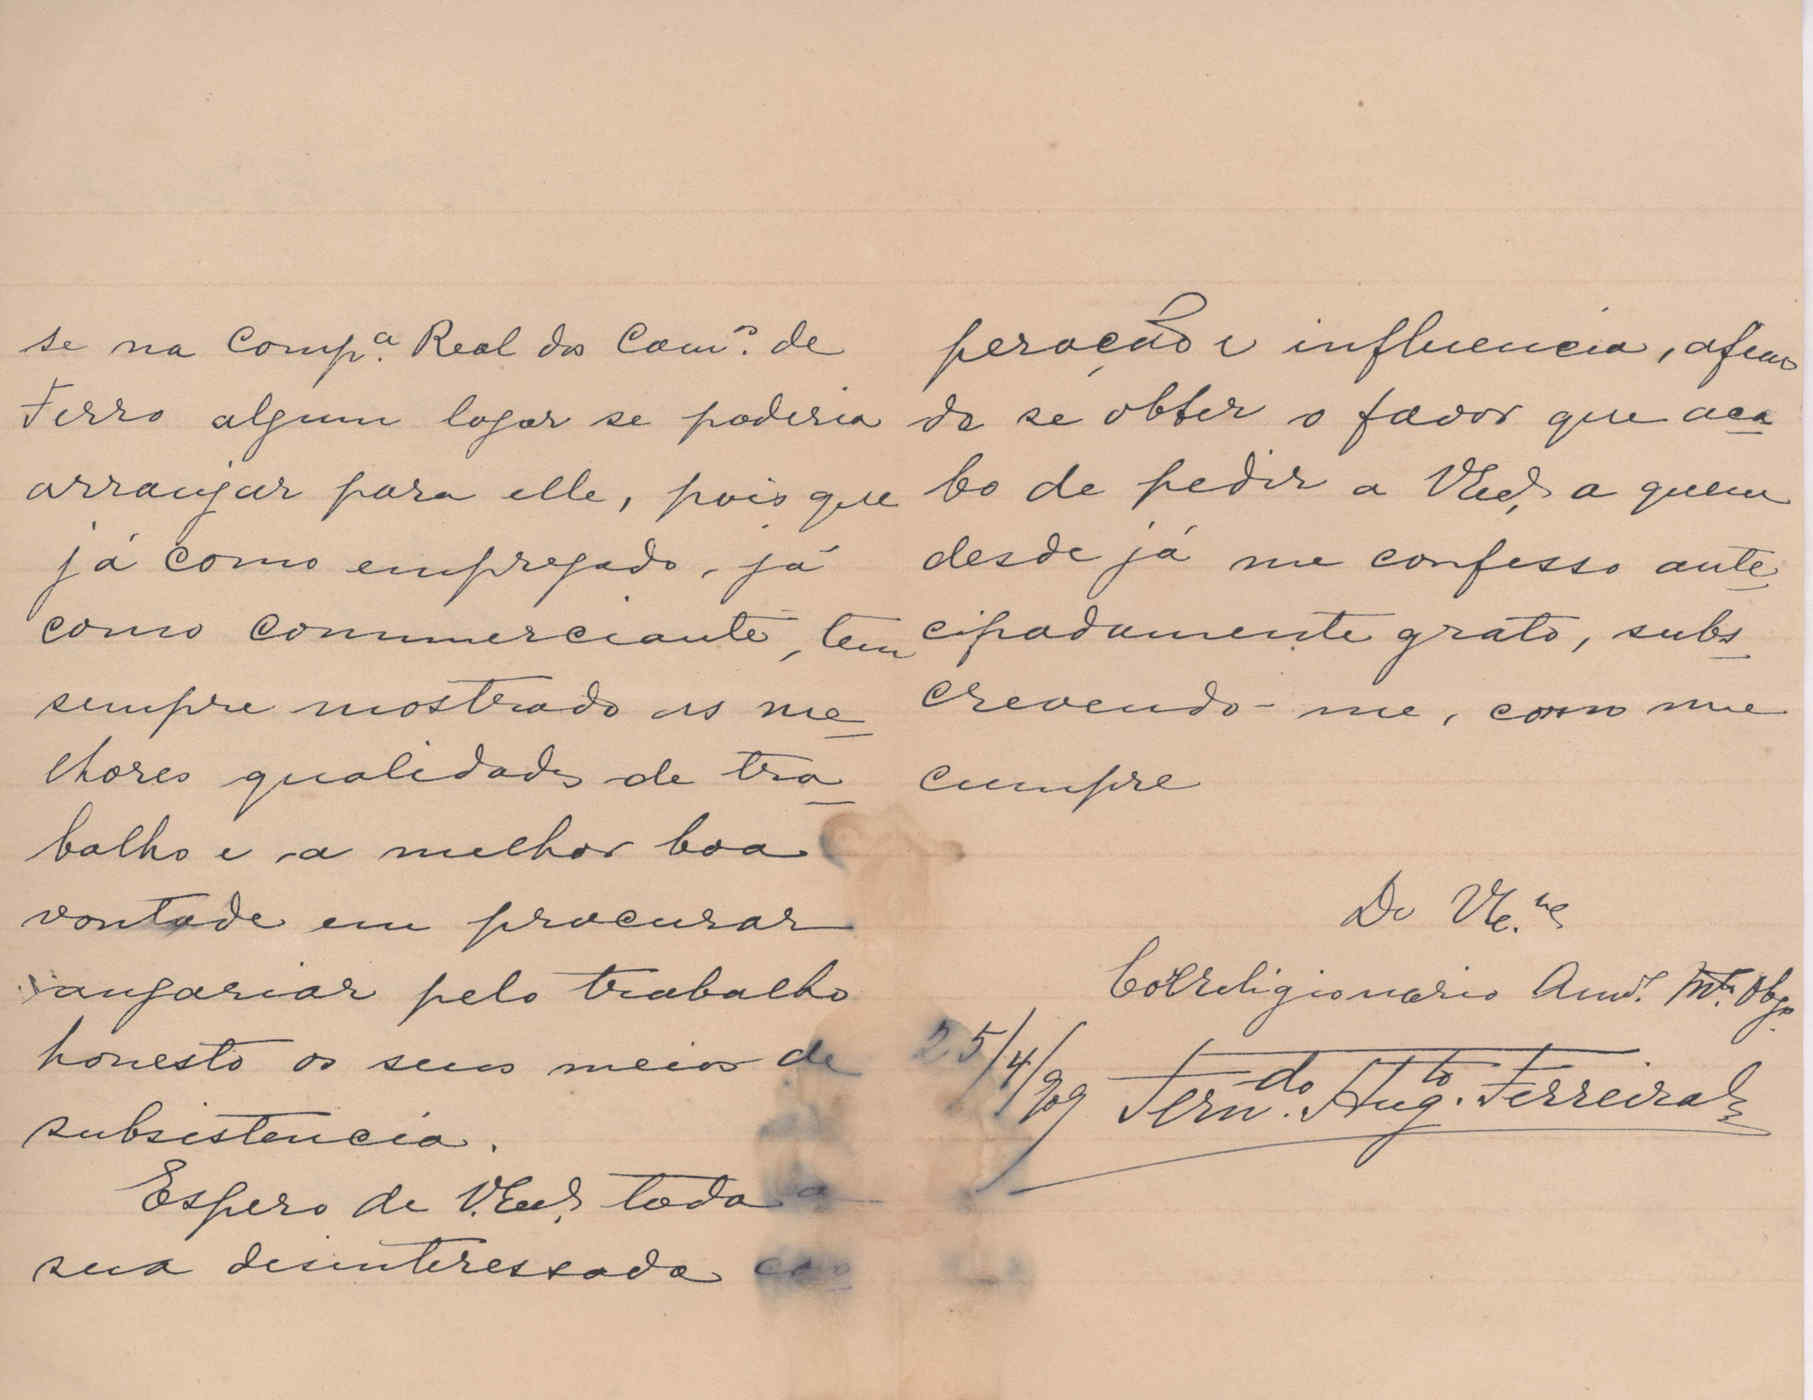 se na Comp.ª Real dos Cam.os de
Ferro algum logar se poderia
arranjar para elle, pois que
já como empregado, já
como commerciante, tem
sempre mostrado as me-
lhores qualidades de tra-
balho e a melhor boa
vontade em procurar
angariar pelo trabalho
honesto os seus meios de
subsistencia.
Espero de V. Ex.ª toda a
sua desinteressada coo-
peração e influencia, afim
de se obter o favor que aca-
bo de pedir a V. Ex.ª, a quem
desde já me confesso ante-
cipadamente grato, subs-
crevendo-me, como me
cumpre
De V. Ex.
Correligionario Am.º Mt.º Obg.º
25/4/909 Fern.do Aug.to Ferreira